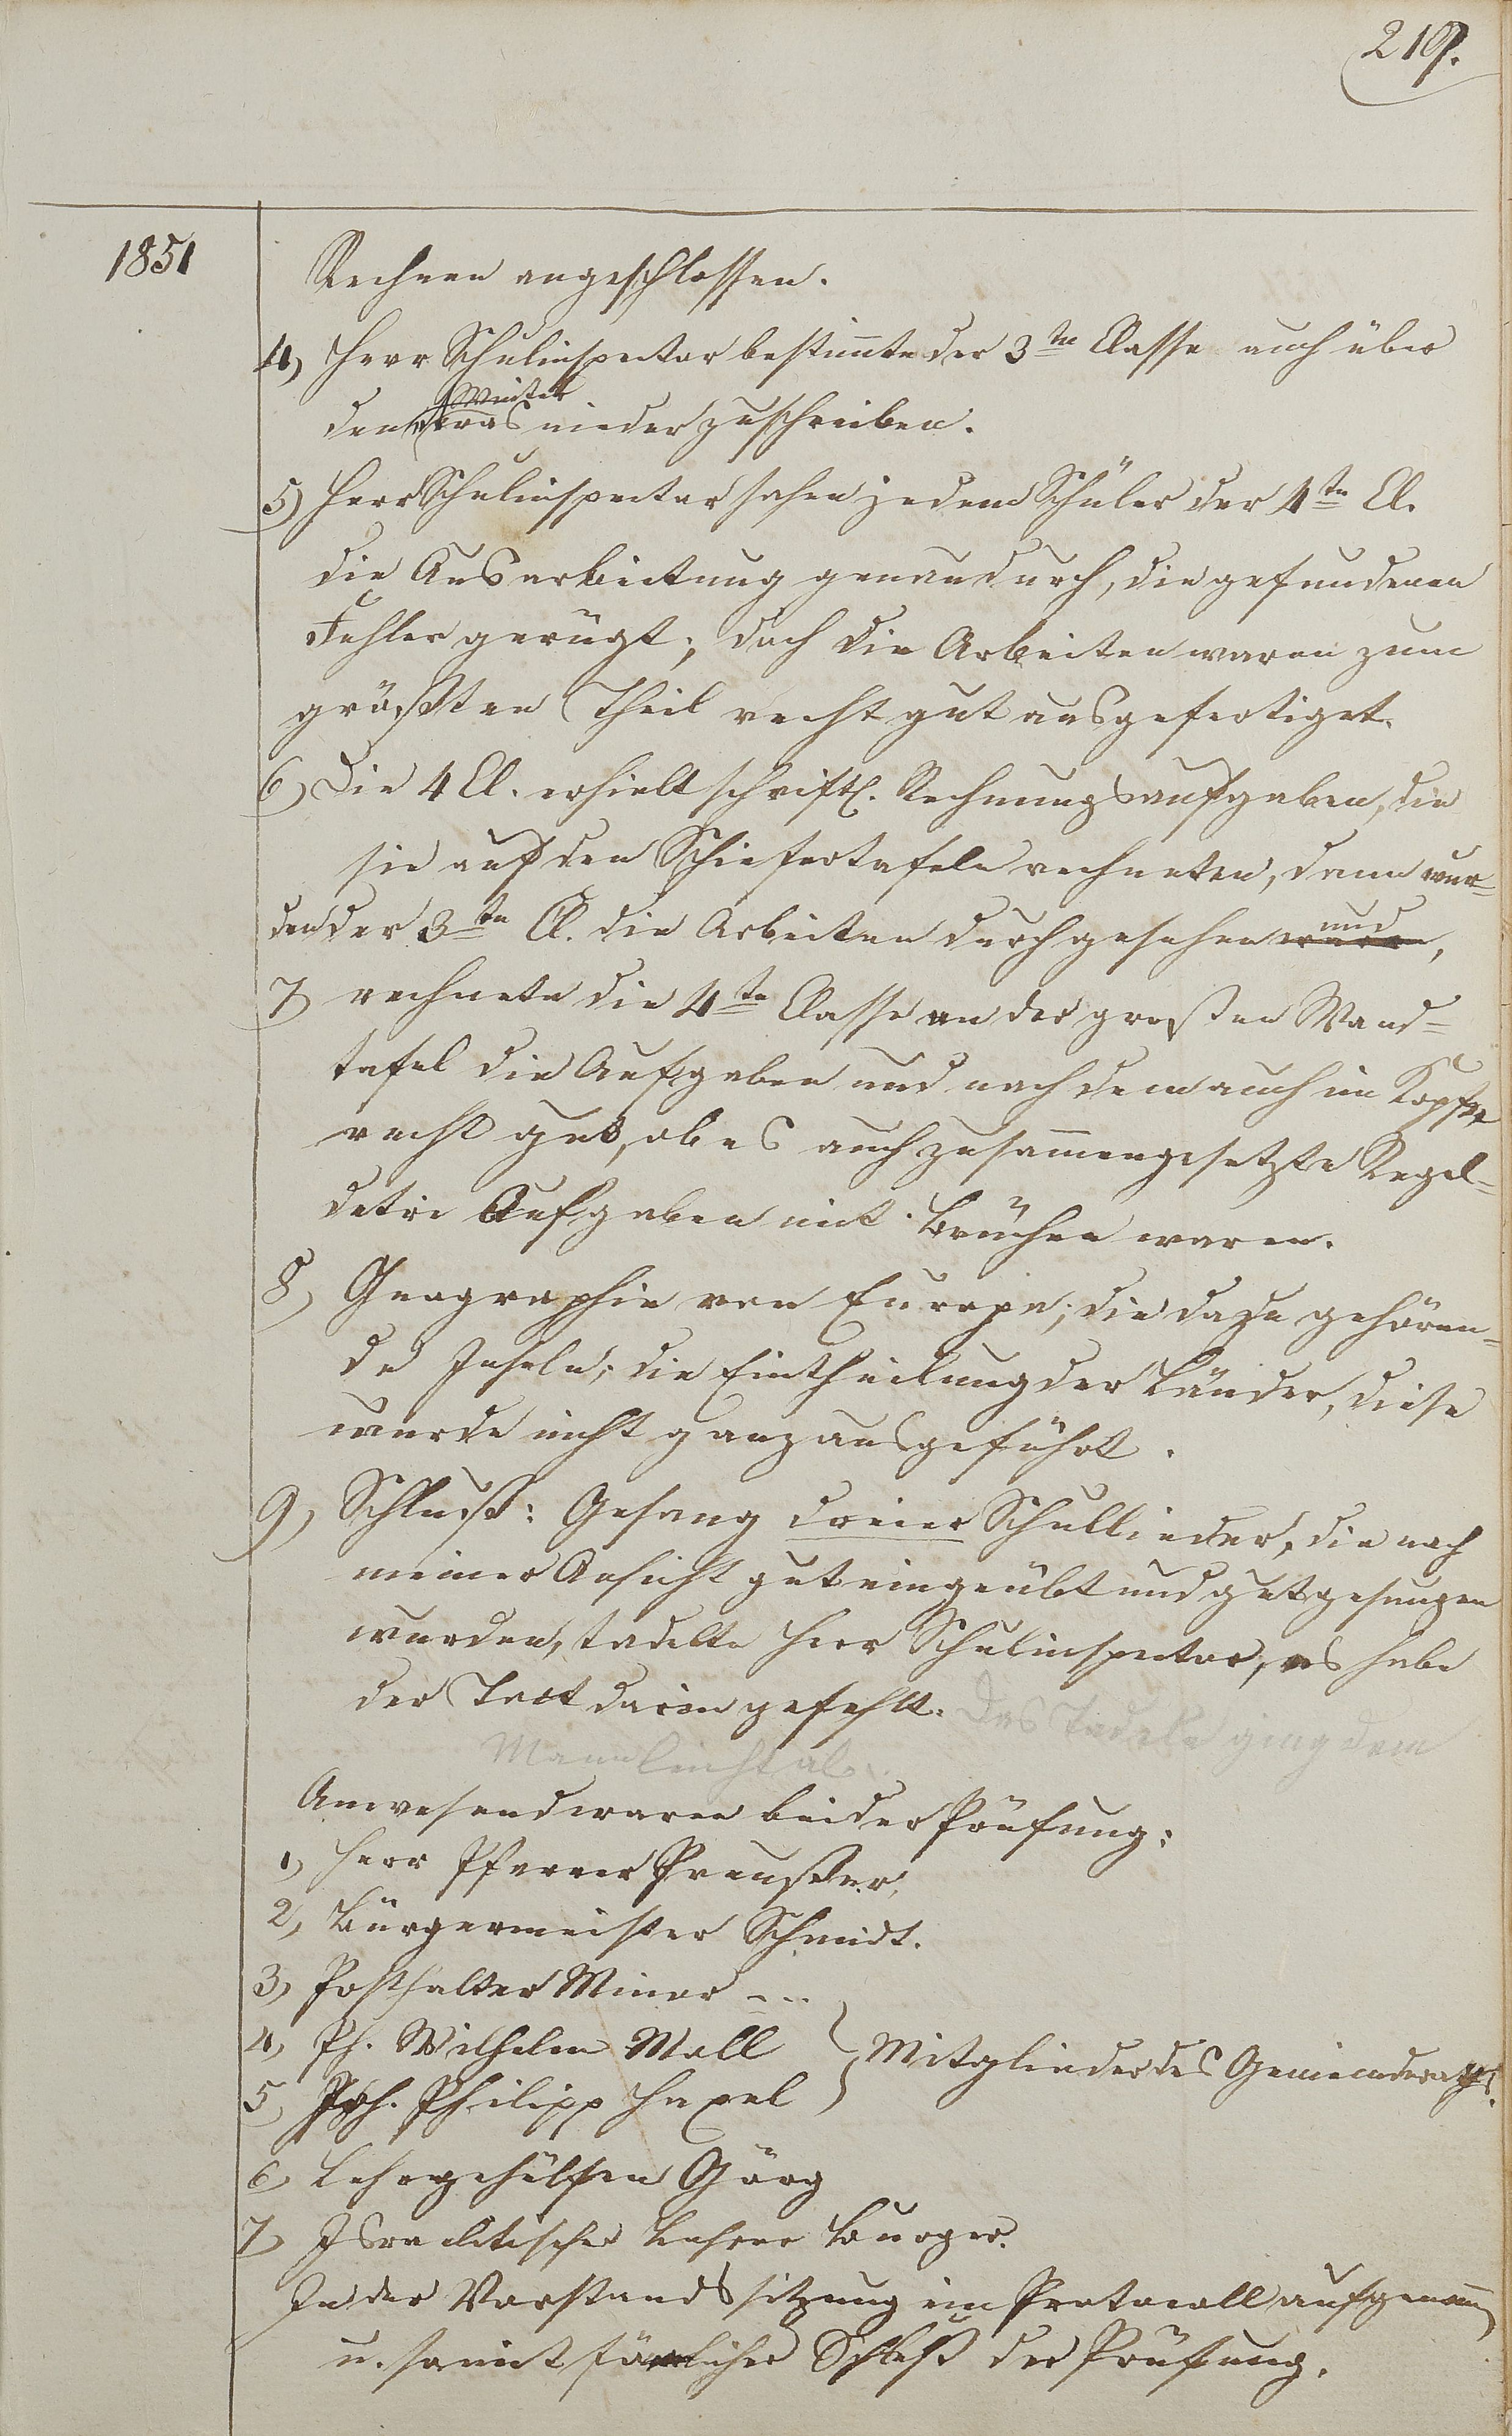 219.
1851
Rechnen angeschlossen.
4, Herr Schulinspector bestimmte der 3ten Classe auch über
Winter
den etwas niederzuschreiben.
5) Herr Schulinspector sahen jedem Schüler der 4ten Cl.
die Ausarbeitung genau durch, die gefundenen
Fehler gerügt; doch die Arbeiten waren zum
größten Theil recht gut ausgefertiget.
6) Die 4 Cl. erhielt schriftl. Rechnungsaufgaben, die
sie auf den Schiefertafeln rechneten, dann wur-
den der 3ten Cl. die Arbeiten durchgesehen und,
7, rechnete die 4te Classe an der großen Wand-
tafel die Aufgaben und nachdem auch im Kopfe
recht gut, ob es auch zusammengesetzte Regel-
detri Aufgaben mit Brüchen waren.
8, Geographie von Europa; die dazu gehören-
de Inseln; die Eintheilung der Länder, diese
wurde nicht ganz ausgeführt.
9, Schluß: Gesang dreier Schullieder, die nach
meiner Ansicht gut eingeübt und gut gesungen
wurden, tadelte Herr Schulinspector, es habe
der Tact darin gefehlt. Das Tadeln ging dem
Mann leicht ab.
Anwesend waren bei der Prüfung:
1, Herr Pfarrer Preußer,
2, Bürgermeister Schmidt.
3, Posthalter Minor - - -
4, Ph. Wilhelm Mall } Mitglieder des Gemeinderaths.
5, Joh. Philipp Hexel
6, Lehrgehülfen Görg
7, Israelitischer Lehrer Burger.
In der Vorstandssitzung im Protocoll aufgenomm
u. somit förmlicher Schluß der Prüfung.